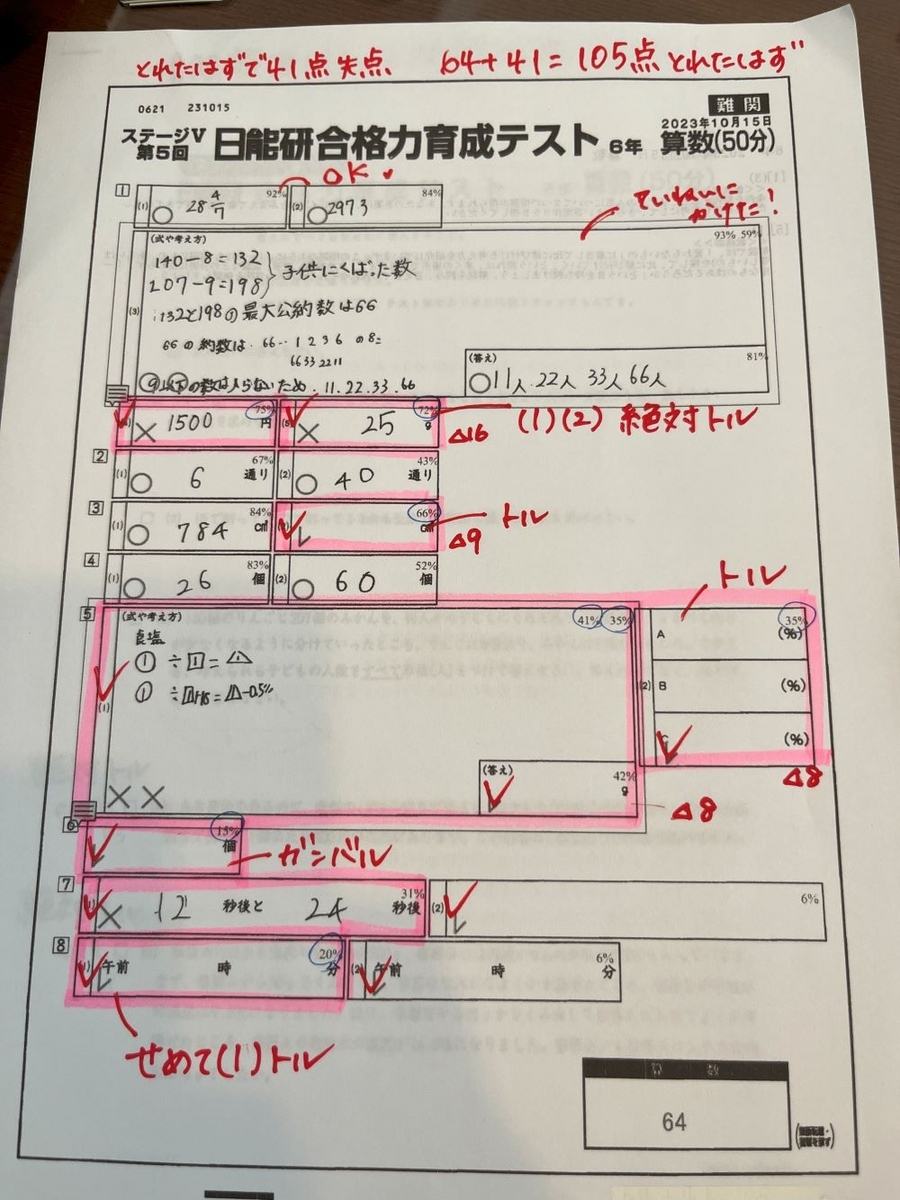 とれたはずで41点失点 64+41=105点とれたはず
0621 231015
難関
ステージⅤ 第5回 日能研合格力育成テスト 6年 2023年10月15日 算数(50分)
OK
1 (1) 28 4/7 92% (2) 2973 84%
ていねいに
かけた!
(式や考え方) 93% 59%
140-8=132
207-9=198 }子供にくばった数
(3) 132と198の最大公約数は66
66の約数は 66… 1 2 3 6 の8こ
66 33 22 11
9以下の数は入らないため 11.22.33.66
(答え) 81%
11人 22人 33人 66人
1500 円 75% 25 g 72%
△16 (1)(2) 絶対トル
2 (1) 6 通り 67% (2) 40 通り 43%
3 (1) 784 84% 66%
トル
△9
4 (1) 26 個 83% (2) 60 個 52%
トル
5 (1) (式や考え方) 41% 35%
食塩
① ÷ 1 = △
① ÷ 1+15 = △-0.5%
(答え) 42% g
△8
(2) A (%) 35%
B (%)
C (%)
△8
6 15% 個
ガンバル
7 (1) 12 秒後と 24 秒後 31% (2) 6%
8 (1) 午前 時 分 20% (2) 午前 時 分 6%
せめて(1)トル
算数
64